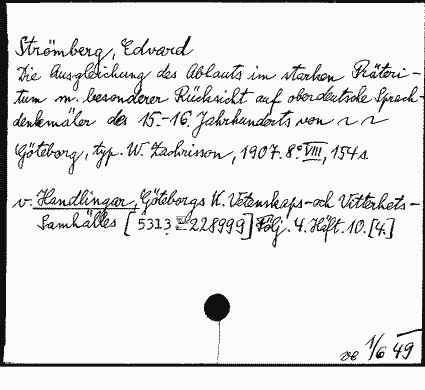 Strömberg, Edvard
Die Ausgleichung des Ablauts im starken Präteri-
tum m. besonderer Rücksicht auf oberdeutsche Sprach-
denkmäler des 15.-16. Jahrhunderts von ~ ~
Göteborg, typ. W. Zachrisson, 1907. 8° VIII, 154 s.
v. Handlingar, Göteborgs K. Vetenskaps- och Vitterhets-
Samhälles [5313 = 228999] Följ. 4. Häft. 10. [4.]
1/6 49